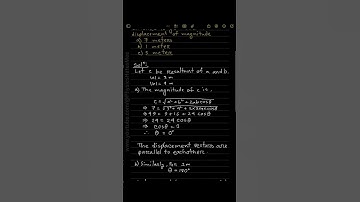 displacement of magnitude
a) 7 meters
b) 1 meter
c) 5 meter
Solⁿ:
Let c be resultant of a and b.
|a| = 3 m
|b| = 4 m
a) The magnitude of c is,
c = √a² + b² + 2ab cosθ
⇒ 7 = √3² + 4² + 2×3×4 cosθ
⇒ 49 = 9 + 16 + 24 cosθ
⇒ 24 = 24 cosθ
⇒ cosθ = 1
∴ θ = 0°
The displacement vectors are
parallel to eachother.
b) Similarly, for 1m
θ = 180°